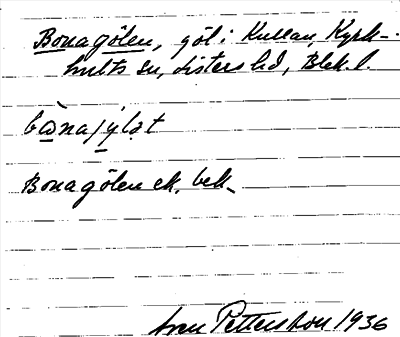 Bonagölen, göl i Kullan, Kyrk-
hults sn, Listers hd, Blek. l.
bo̱̊̀naj̱yḻət
Bonagölen ek. bek.
Sven Pettersson 1936